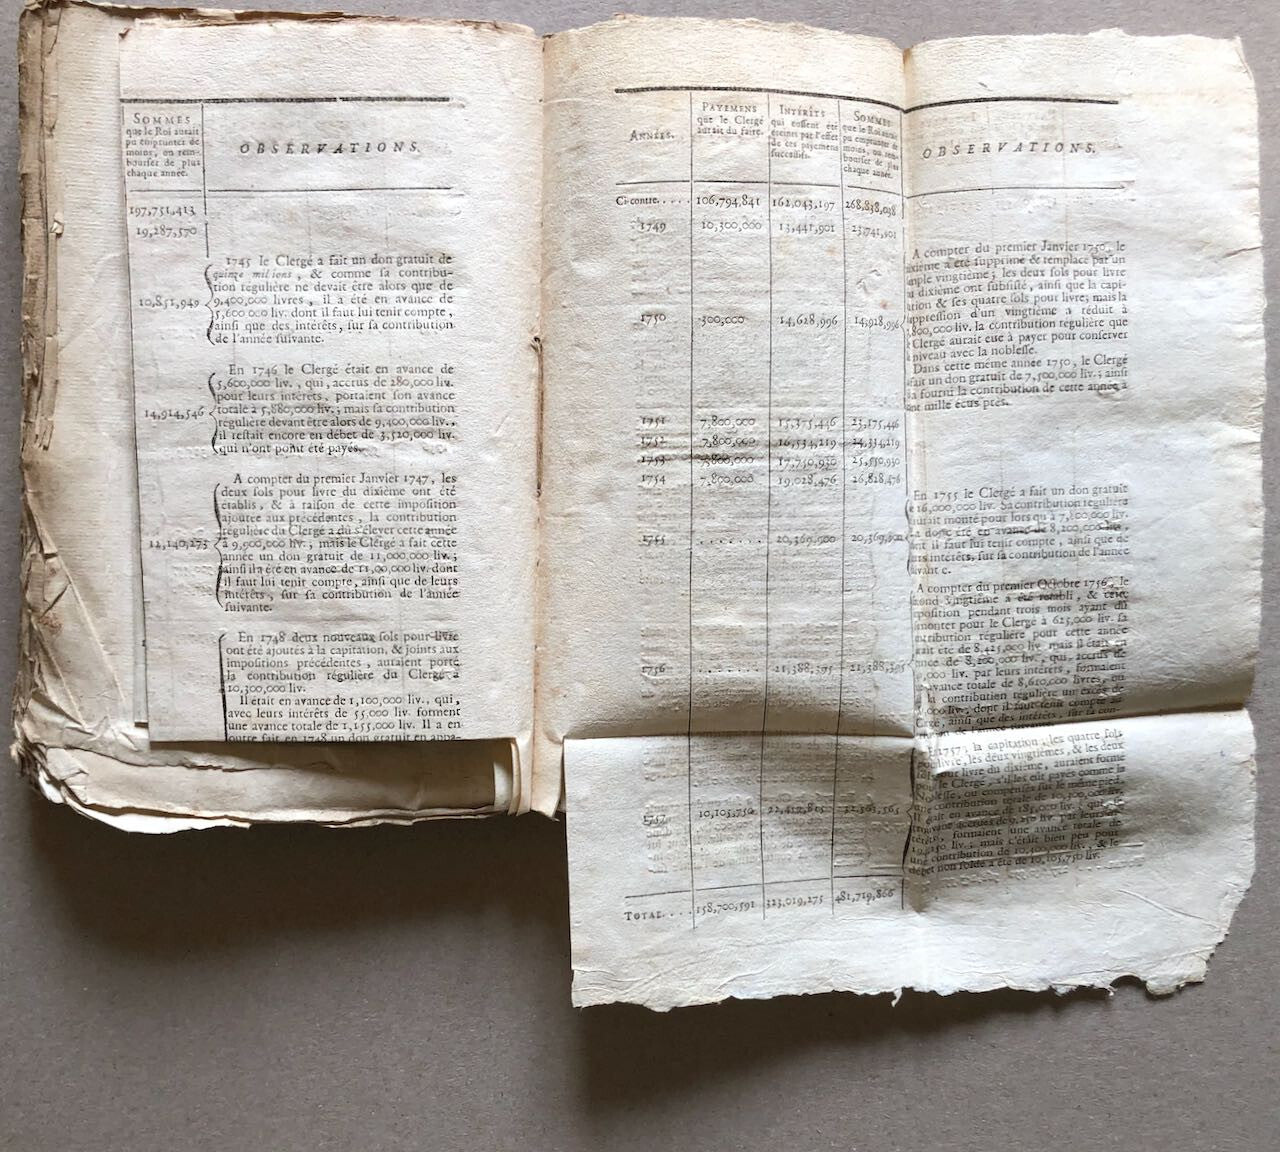 SOMMES
que le Roi aurait
pu emprunter de
moins, ou rem-
bourser de plus
chaque année.
OBSERVATIONS.
197,751,413
19,287,570
1745 le Clergé a fait un don gratuit de
quinze milions, & comme sa contribu-
tion régulière ne devait être alors que de
10,851,949
9,400,000 livres, il a été en avance de
5,600,000 liv. dont il faut lui tenir compte,
ainsi que des intérêts, sur sa contribution
de l'année suivante.
En 1746 le Clergé était en avance de
5,600,000 liv., qui, accrus de 280,000 liv.
pour leurs intérêts, portaient son avance
14,914,546
totale à 5,880,000 liv.; mais sa contribution
régulière devant être alors de 9,400,000 liv.,
il restait encore en débet de 3,520,000 liv.
qui n'ont point été payés.
A compter du premier Janvier 1747, les
deux sols pour livre du dixième ont été
établis, & à raison de cette imposition
ajoutée aux précédentes, la contribution
régulière du Clergé a dû s'élever cette année
12,140,273
à 9,900,000 liv.; mais le Clergé a fait cette
année un don gratuit de 11,000,000 liv.;
ainsi il a été en avance de 11,00,000 liv. dont
il faut lui tenir compte, ainsi que de leurs
intérêts, sur sa contribution de l'année
suivante.
En 1748 deux nouveaux sols pour livre
ont été ajoutés à la capitation, & joints aux
impositions précédentes, auraient porté
la contribution régulière du Clergé à
10,300,000 liv.
Il était en avance de 1,100,000 liv., qui,
avec leurs intérêts de 55,000 liv. forment
une avance totale de 1,155,000 liv. Il a en
outre fait en 1748 un don gratuit en appa-
ANNÉES.
PAYEMENS
que le Clergé
aurait du faire.
INTÉRÊTS
qui eussent été
éteints par l'effet
de ces payemens
successifs.
SOMMES
que le Roi aurait
pu emprunter de
moins, ou rem-
bourser de plus
chaque année.
OBSERVATIONS.
Ci-contre..... 106,794,841 162,043,197 268,838,038
1749 10,300,000 13,441,901 23,741,901
A compter du premier Janvier 1750, le
dixième a été supprimé & remplacé par un
mple vingtième; les deux sols pour livre
u dixième ont subsisté, ainsi que la capi-
tation & ses quatre sols pour livre; mais la
uppression d'un vingtième a réduit à
1750 300,000 14,628,996 14,928,996
,800,000 liv. la contribution régulière que
Clergé aurait eue à payer pour conserver
niveau avec la noblesse.
Dans cette même année 1750, le Clergé
fait un don gratuit de 7,500,000 liv.; ainsi
a fourni la contribution de cette année à
ent mille écus près.
1751 7,800,000 15,375,446 23,175,446
1752 7,800,000 16,534,219 24,334,219
1753 7,800,000 17,750,930 25,550,930
1754 7,800,000 19,028,476 26,828,476
En 1755 le Clergé a fait un don gratuit
e 16,000,000 liv. Sa contribution régulière
aurait monté pour lors qu'à 7,800,000 liv.
a donc été en avance de 8,200,000 liv.,
1755 ........ 20,369,900 20,369,900
ont il faut lui tenir compte, ainsi que de
urs intérêts, sur sa contribution de l'année
uivant e.
A compter du premier Octobre 1756, le
cond vingtième a été rétabli, & cette
position pendant trois mois ayant dû
monter pour le Clergé à 625,000 liv. sa
ntribution régulière pour cette année
rait été de 8,425,000 liv. mais il était en
nce de 8,200,000 liv., qui, accrus de
1756 ........ 21,388,395 21,388,395
,000 liv. par leurs intérêts, formaient
avance totale de 8,610,000 livres, ou
la contribution régulière un excès de
,000 liv., dont il faut tenir compte au
Clergé, ainsi que des intérêts, sur sa con-
En 1757, la capitation, les quatre sols
pour livre, les deux vingtièmes, & les deux
sols pour livre du dixième, auraient formé
pour le Clergé, s'il les eût payés comme la
Noblesse, ou compensés sur le même pied,
1757 10,105,750 22,459,815 32,565,565
une contribution totale de 10,300,000 liv.
Il était en avance de 185,000 liv.; qui, se
trouvant accrues de 9,250 liv. par leurs in-
térêts, formaient une avance totale de
194,250 liv.; mais c'était bien peu pour
une contribution de 10,300,000 liv., & le
débet non soldé a été de 10,105,750 liv.
TOTAL.... 158,700,591 323,019,275 481,719,866